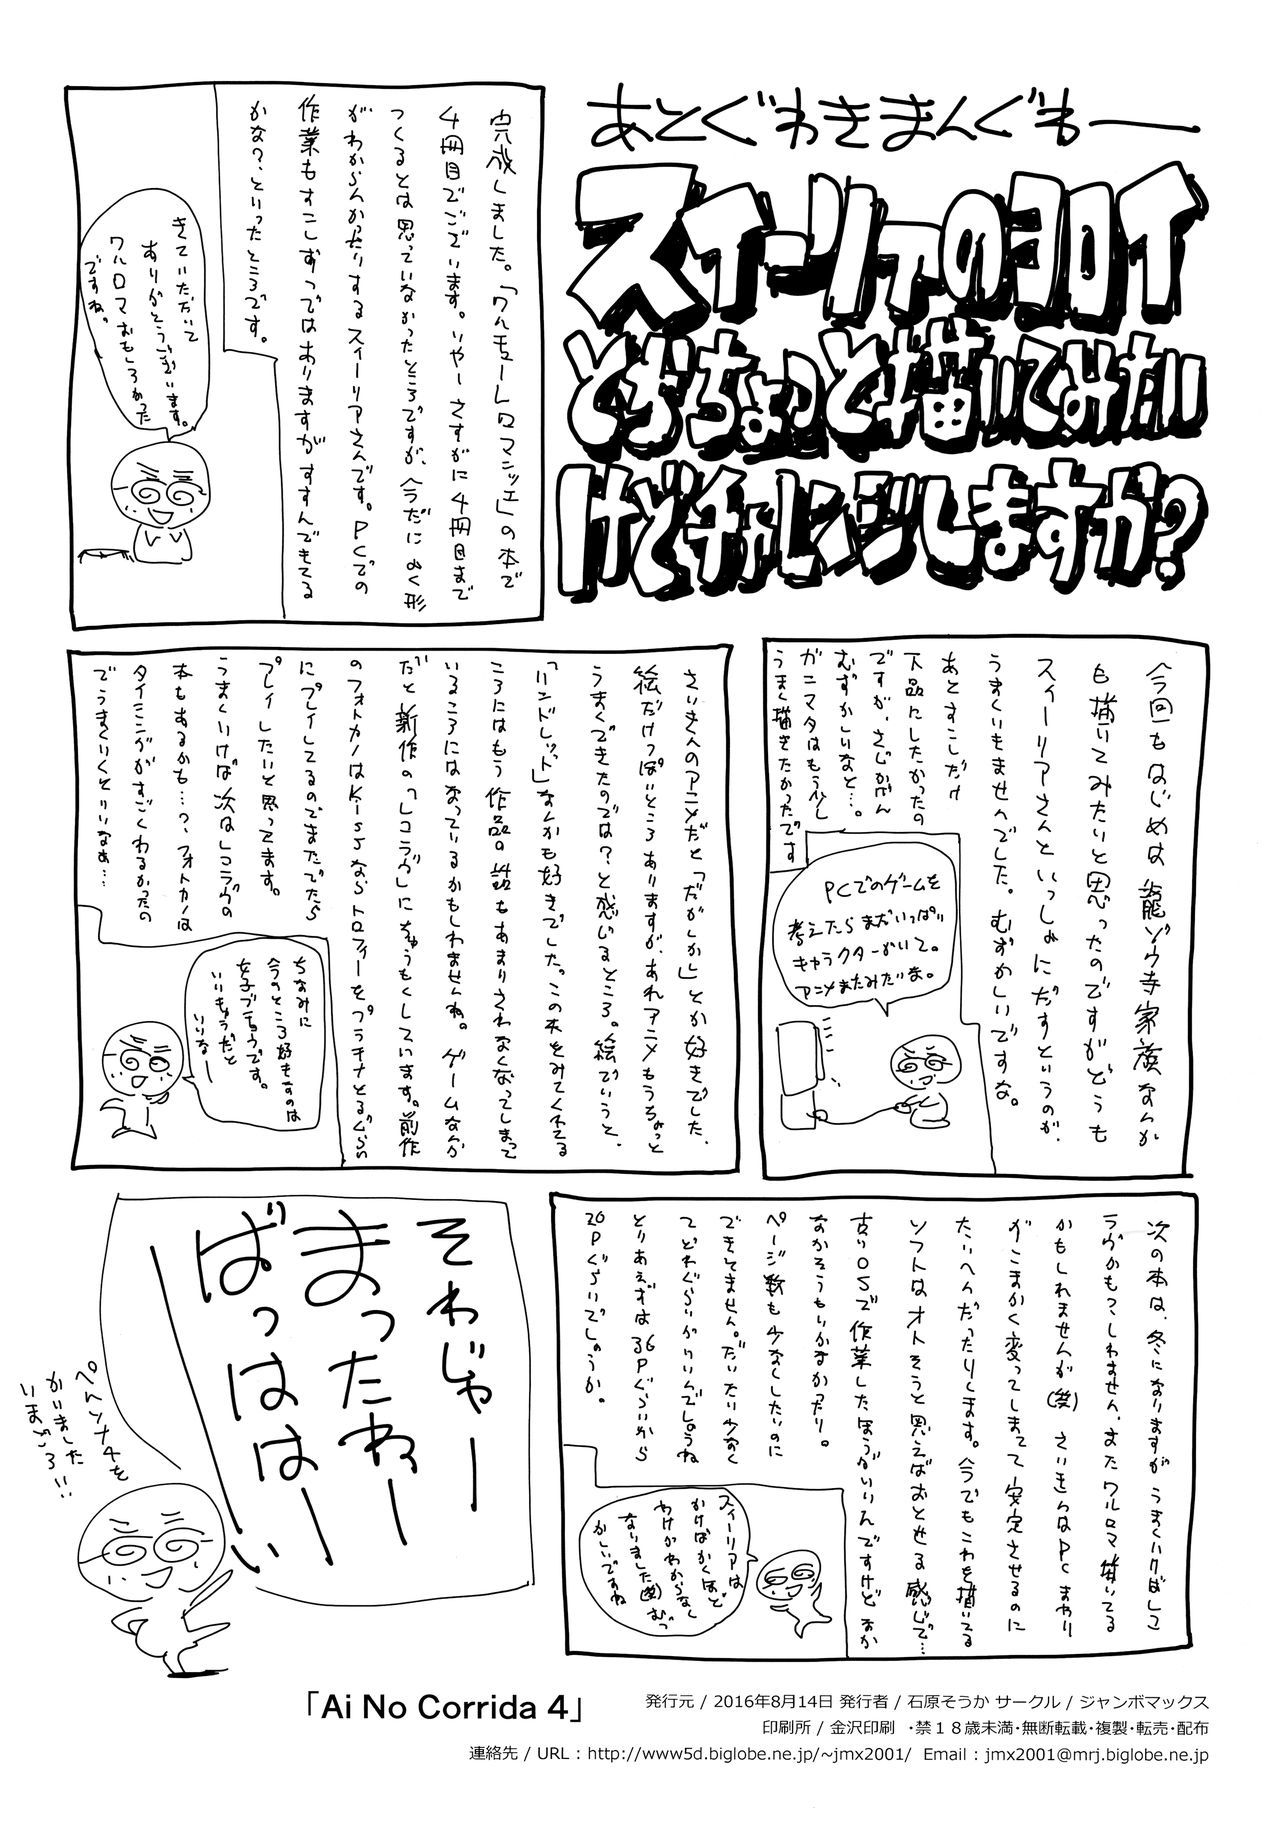 あとぐわきまんぐもー
スイーリアのヨロイ
とかちょっと描いてみたい
けどチャレンジしますか?
完成しました。「ワルキューレロマンツェ」の本で
4冊目でございます。いやーさすがに4冊目まで
つくるとは思っていなかったところですが、今だに
がわからんかったりするスイーリアさんです。PCでの
作業もすこしずつではありますがすすんでもてる
かな?、といったところです。
きていただいて
ありがとうございます。
ワルロマおもしろかった
ですね。
今回もはじめは龍ゾウ寺家族なんか
も描いてみたいと思ったのですがどうも
スイーリアさんといっしょにだすというのが、
うまくいきませんでした。むずかしいですな。
あとすこしだけ
下品にしたかったの
ですが、さじかげん
むずかしいなと…。
ガニマタはもう少し
うまく描きたかったです
PCでのゲームを
考えたらまだいっぱい
キャラクターがいて。
アニメまたみたいな。
さいきんのアニメだと「だがしかし」とか好きでした、
絵だけっぽいところありますが、あれアニメもうちょっと
うまくできたのでは?と感じるところ。絵でいうと、
「ハンドレッド」なんかも好きでした。この本をみてくれてる
ころにはもう作品の話もあまりされなくなってしまって
いるころにはなっているかもしれませんね。ゲームなんか
だと新作の「レコラヴ」にちゅうもくしています。前作
のフォトカノはKissならトロフィーをプラチナとるぐらい
にプレイしてるのでまたでたら
プレイしたいと思ってます。
うまくいけば次はレコラヴの
本もあるかも…?、フォトカノは
タイミングがすごくわるかったの
でうまくいくといいなぁ…
ちなみに
今のところ好きなのは
女子プチョウです。
いいキョウだと
いいなー
次の本は、冬になりますがうまくいけばレコ
ラヴかもっしれません、またワルロマ描いてる
かもしれませんが(笑) さいきんはPCまわり
がこまかく変ってしまってて安定させるのに
たいへんだったりします。今でもこれを描いてる
ソフトはオトそうと思えばおとせる感じで…
古いOSで作業したほうがいいんですけどなか
なかそうもいかなかったり。
ページ数も少なくしたいのに
できてません。だいたい少なく
てどれぐらいがいいんでしょうね
とりあえずは36Pぐらいから
20Pぐらいでしょうか。
スイーリアは
かけばかくほど
わけがわからなく
なりました(笑)むっ
かしいですね
それじゃー
まったねー
ばっははーい
ペルソナ4を
かいました
いまごろ!!
「Ai No Corrida 4」
発行元 / 2016年8月14日 発行者 / 石原そうか サークル / ジャンボマックス
印刷所 / 金沢印刷 ・禁18歳未満・無断転載・複製・転売・配布
連絡先 / URL : http://www5d.biglobe.ne.jp/~jmx2001/ Email : jmx2001@mrj.biglobe.ne.jp